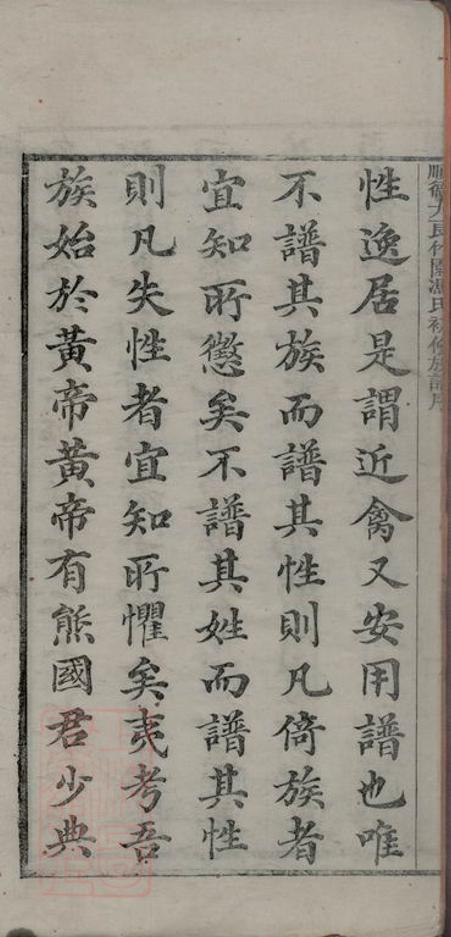 順德大良竹園馮氏初修族譜序
性逸居是謂近禽又安用譜也唯
不譜其族而譜其性則凡倚族者
宜知所懲矣不譜其姓而譜其性
則凡失性者宜知所懼矣夷考吾
族始於黃帝黃帝有熊國君少典